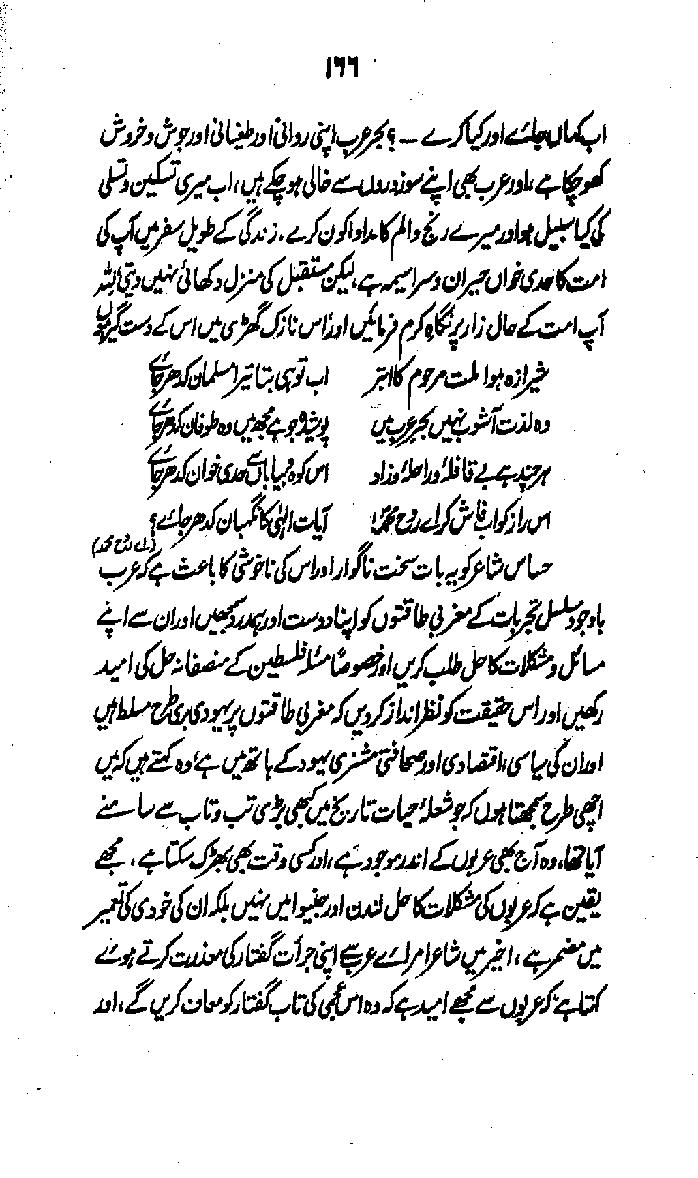 ۱۶۶
اب کہاں جائے اور کیا کرے ۔۔ ؟ بحر عرب اپنی روانی اور طغیانی اور جوش و خروش
کھو چکا ہے، اور عرب بھی اپنے سوز دروں سے خالی ہو چکے ہیں، اب میری تسکین و تسلی
کی کیا سبیل ہو اور میرے رنج و الم کا مداوا کون کرے، زندگی کے طویل سفر میں آپ کی
امت کا حدی خواں حیران و سراسیمہ ہے، لیکن مستقبل کی منزل دکھائی نہیں دیتی، للہ
آپ امت کے حال زار پر نگاہ کرم فرمائیں اور اس نازک گھڑی میں اس کے دست گیر ہوں
شیرازہ ہوا ملت مرحوم کا ابتر اب تو ہی بتا تیرا مسلمان کدھر جائے
وہ لذت آشوب نہیں بحر عرب میں پوشیدہ جو ہے مجھ میں وہ طوفان کدھر جائے
ہر چند ہے بے قافلہ و راحلہ و زاد اس کوہ و بیاباں سے حدی خوان کدھر جائے
اس راز کو اب فاش کر اے روح محمدؐ! آیات الٰہی کا نگہبان کدھر جائے؟
(اے روح محمد)
حساس شاعر کو یہ بات سخت ناگوار اور اس کی ناخوشی کا باعث ہے کہ عرب
باوجود مسلسل تجربات کے مغربی طاقتوں کو اپنا دوست اور ہمدرد سمجھیں اور ان سے اپنے
مسائل و مشکلات کا حل طلب کریں اور خصوصاً مسئلہ فلسطین کے منصفانہ حل کی امید
رکھیں اور اس حقیقت کو نظر انداز کر دیں کہ مغربی طاقتوں پر یہودی بری طرح مسلط ہیں
اور ان کی سیاسی، اقتصادی اور صحافتی مشنری یہود کے ہاتھ میں ہے، وہ کہتے ہیں کہ میں
اچھی طرح سمجھتا ہوں کہ جو شعلۂ حیات تاریخ میں کبھی بڑی تب و تاب سے سامنے
آیا تھا، وہ آج بھی عربوں کے اندر موجود ہے، اور کسی وقت بھی بھڑک سکتا ہے، مجھے
یقین ہے کہ عربوں کی مشکلات کا حل لندن اور جنیوا میں نہیں بلکہ ان کی خودی کی تعمیر
میں مضمر ہے، اخیر میں شاعر امرائے عرب سے اپنی جرأت گفتار کی معذرت کرتے ہوئے
کہتا ہے کہ عربوں سے مجھے امید ہے کہ وہ اس عجمی کی تاب گفتار کو معاف کریں گے، اور